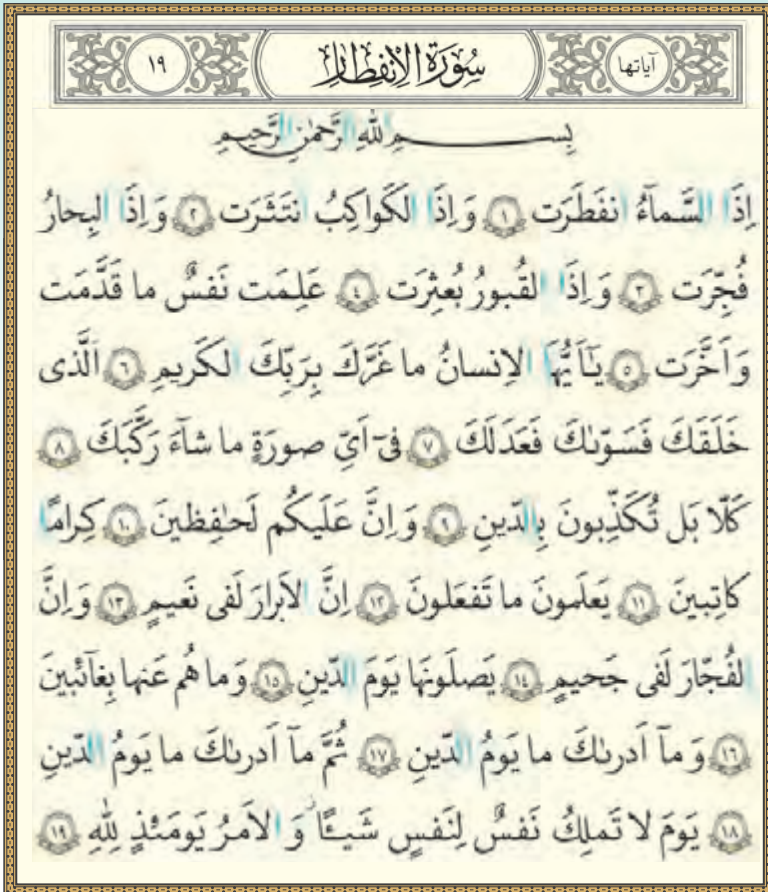 آیاتها سُورَةُ الاِنفِطار ١٩
بِسمِ اللهِ الرَّحمٰنِ الرَّحیمِ
اِذَا السَّماۤءُ انفَطَرَت ﴿١﴾ وَ اِذَا الكَواكِبُ انتَثَرَت ﴿٢﴾ وَ اِذَا البِحارُ
فُجِّرَت ﴿٣﴾ وَ اِذَا القُبورُ بُعثِرَت ﴿٤﴾ عَلِمَت نَفسٌ ما قَدَّمَت
وَ اَخَّرَت ﴿٥﴾ یٰۤاَیُّهَا الاِنسانُ ما غَرَّكَ بِرَبِّكَ الكَریمِ ﴿٦﴾ اَلَّذی
خَلَقَكَ فَسَوّىٰكَ فَعَدَلَكَ ﴿٧﴾ فیۤ اَیِّ صورَةٍ ما شاۤءَ رَكَّبَكَ ﴿٨﴾
كَلّا بَل تُكَذِّبونَ بِالدّینِ ﴿٩﴾ وَ اِنَّ عَلَیكُم لَحٰفِظینَ ﴿١٠﴾ كِرامًا
كاتِبینَ ﴿١١﴾ یَعلَمونَ ما تَفعَلونَ ﴿١٢﴾ اِنَّ الاَبرارَ لَفی نَعیمٍ ﴿١٣﴾ وَ اِنَّ
الفُجّارَ لَفی جَحیمٍ ﴿١٤﴾ یَصلَونَها یَومَ الدّینِ ﴿١٥﴾ وَ ما هُم عَنها بِغاۤئِبینَ
﴿١٦﴾ وَ ماۤ اَدرىٰكَ ما یَومُ الدّینِ ﴿١٧﴾ ثُمَّ ماۤ اَدرىٰكَ ما یَومُ الدّینِ
﴿١٨﴾ یَومَ لا تَملِكُ نَفسٌ لِنَفسٍ شَیـًٔا وَ الاَمرُ یَومَئِذٍ لِلّٰهِ ﴿١٩﴾